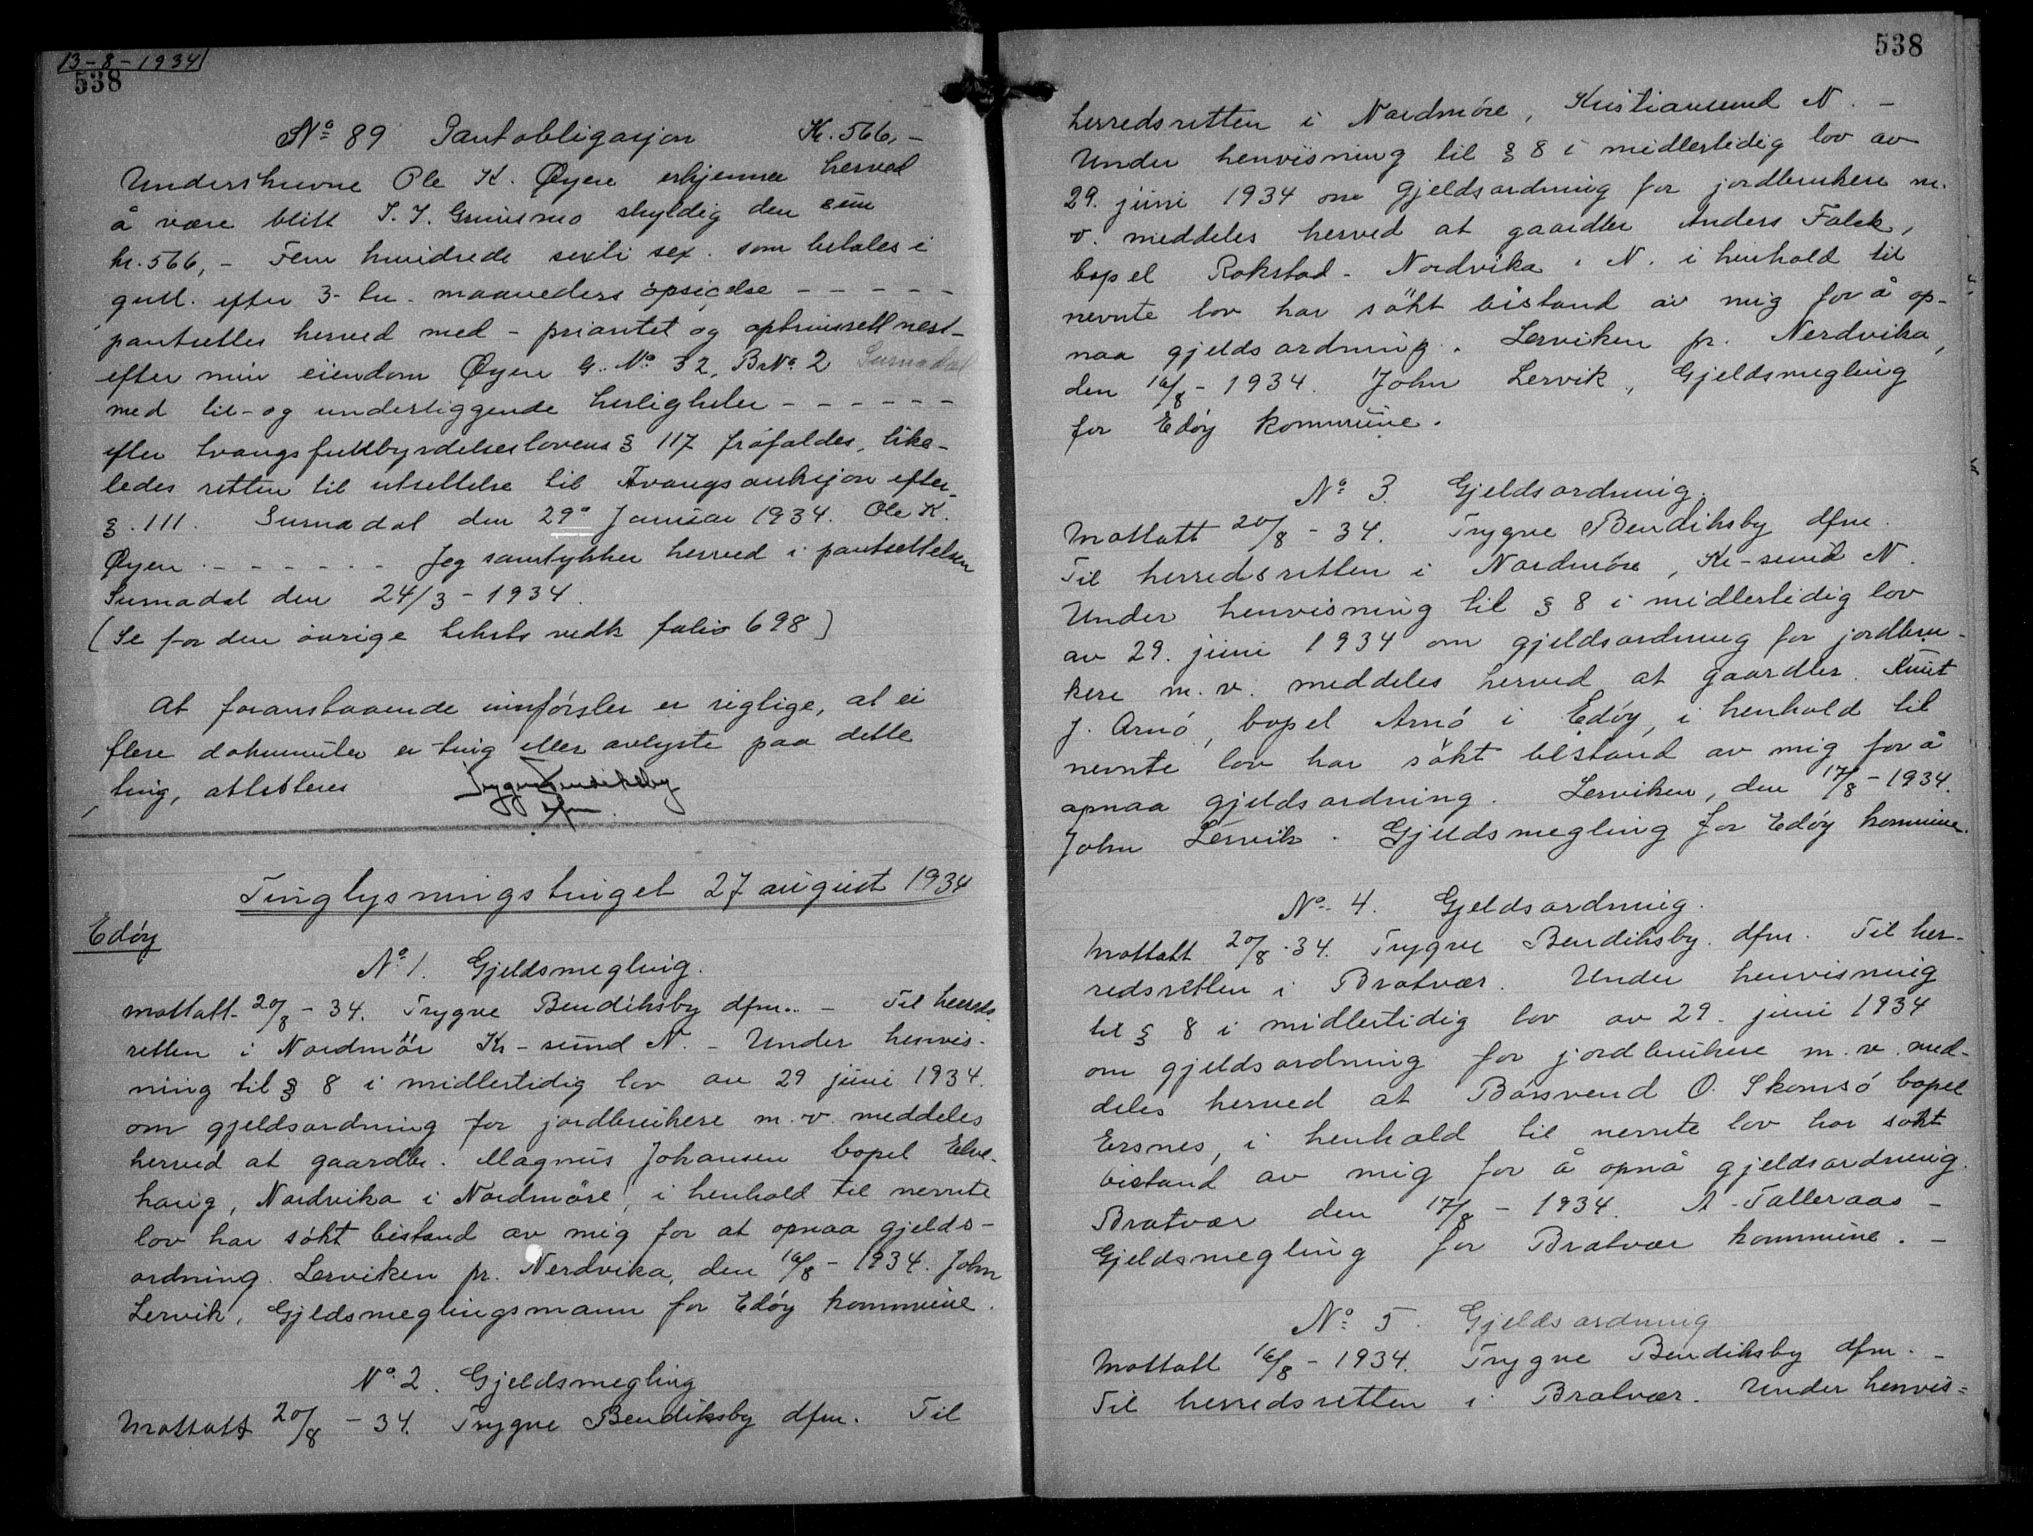 13-8-1934
538
No 89 Pantobligasjon Kr. 566,-
Underskrevne Ole K. Øyen erkjenner herved
å være blitt S. J. Grimsmo skyldig den sum
kr. 566,- Fem hundrede seksti sex. som betales i
gull. efter 3- tre- maaneders opsigelse - - - - -
pantsettes herved med - prioritet og optrinsrett nest-
efter min eiendom Øyen G. No 32, B.No. 2 Surnadal
med til- og underliggende herligheter - - - - - -
efter tvangsfullbyrdelseslovens § 117 frafaldes, like-
ledes retten til utsettelse til Tvangsauksjon efter
§. 111. Surnadal den 29. Januar 1934. Ole K.
Øyen. - - - - - - Jeg samtykker herved i pantsettelsen
Surnadal den 24/3 - 1934.
(Se for den øvrige teksts vedk folio 698)
At foranstaaende innførsler er riktige, at ei
flere dokumenter er ting eller avlyste paa dette
ting, attesteres Trygve Bendiksby
dfm.
Tinglysningstinget 27 august 1934
Edøy
No 1. Gjeldsmegling.
Mottatt 20/8 - 34. Trygve Bendiksby dfm.. - Til herreds-
retten i Nordmör Kr-sund N. - Under henvis-
ning til § 8 i midlertidig lov av 29 juni 1934.
om gjeldsordning for jordbrukere m.v. meddeles
herved at gaardbr. Magnus Johansen bopel Elve-
haug, Nordvika i Nordmøre, i henhold til nevnte
lov har søkt bistand av mig for at opnaa gjelds-
ordning. Lerviken pr. Nerdvika, den 16/8 - 1934. John
Lervik, Gjeldsmeglingsmann for Edøy kommune.
No. 2. Gjeldsmegling
Mottatt 20/8 - 34. Trygve Bendiksby dfm. Til
538
herredsretten i Nordmøre, Kristiansund N. -
Under henvisning til § 8 i midlertidig lov av
29. juni 1934 om gjeldsordning for jordbrukere m.
v. meddeles herved at gaardbr Anders Falck,
bopel Rokstad - Nordvika i N. i henhold til
nevnte lov har søkt bistand av mig for å op-
naa gjeldsordning. Lerviken pr. Nerdvika,
den 16/8 - 1934. John Lervik, Gjeldsmegling
for Edøy kommune.
No 3. Gjeldsordning.
Mottatt 20/8 - 34. Trygve Bendiksby dfm.
Til herredsretten i Nordmøre, Kr-sund N.
Under henvisning til § 8 i midlertidig lov
av 29. juni 1934 om gjeldsordning for jordbru-
kere m.v. meddeles herved at gaardbr. Knut
J. Arnö, bopel Arnö i Edøy, i henhold til
nevnte lov har søkt bistand av mig for å
opnaa gjeldsordning. Lerviken, den 17/8 - 1934.
John Lervik. Gjeldsmegling for Edøy kommune.
No. 4. Gjeldsordning.
Mottatt 20/8 - 34. Trygve Bendiksby. dfm. Til her-
redsretten i Bratvær. Under henvisning
til § 8 i midlertidig lov av 29. juni 1934
om gjeldsordning for jordbrukere m.v. med-
deles herved at Barsvend O. Skomsö bopel
Ersnes, i henhold til nevnte lov har søkt
bistand av mig for å opnå gjeldsordning.
Bratvær den 17/8 - 1934. A. Talleraas -
Gjeldsmegling for Bratvær kommune. -
No 5. Gjeldsordning
Mottatt 16/8 - 1934. Trygve Bendiksby dfm. -
Til herredsretten i Bratvær. Under henvis=